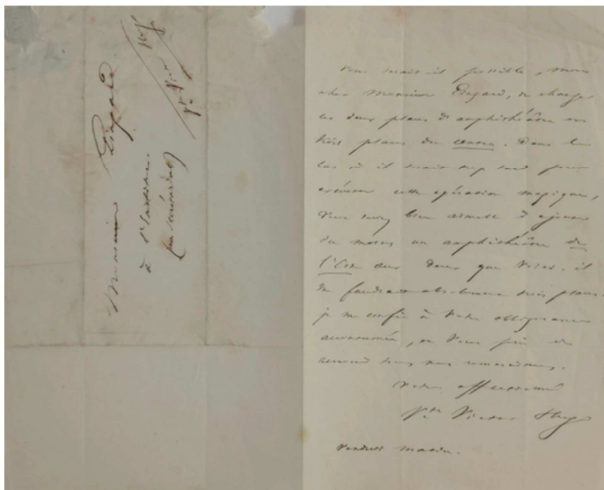 Monsieur Edgard
à l'instant
Vous serait il possible, mon
cher Monsieur Edgard, de changer
ces deux places d'amphithéâtre en
trois places du centre. Dans le
cas où il serait trop tard pour
exécuter cette opération magique,
vous seriez bien aimable d'ajouter
du moins un amphithéâtre de
l'Est aux deux que voici. il
me faudrait absolument trois places.
je me confie à votre obligeance
accoutumée, et vous prie de
recevoir tous mes remerciements.
Votre affectionné
Vte Victor Hugo
Vendredi matin.